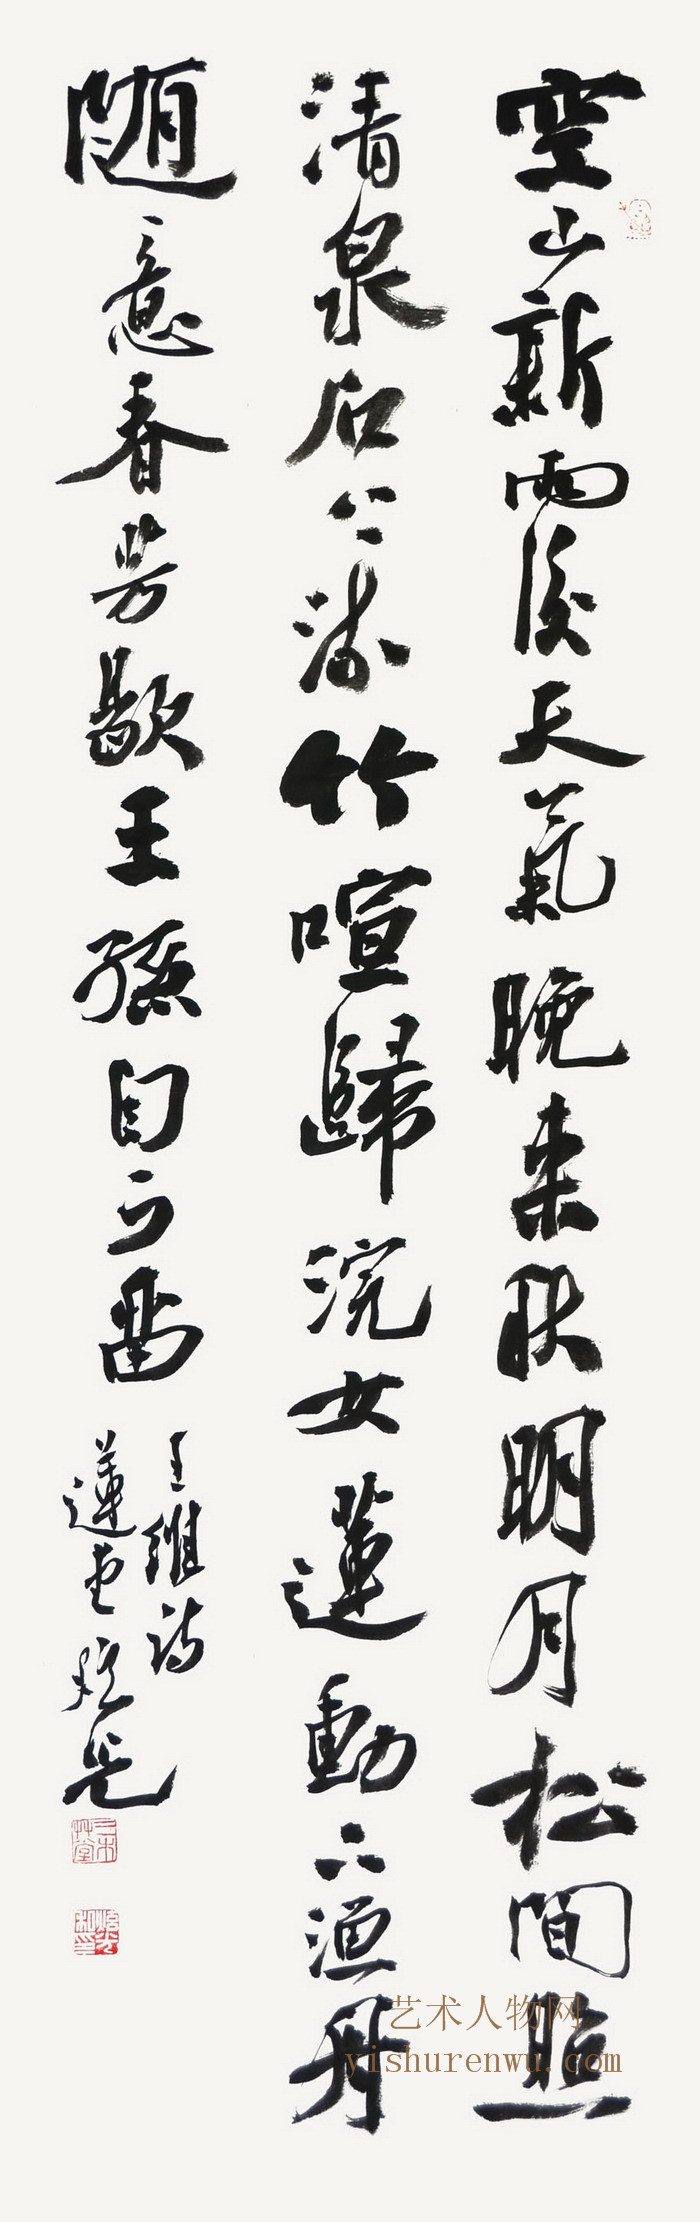 空山新雨後天氣晚来秋明月松間照
清泉石上流竹喧歸浣女蓮動下漁舟
随意春芳歇王孫自可留
王維诗
蓮堂
艺术人物网
yishurenwu.com